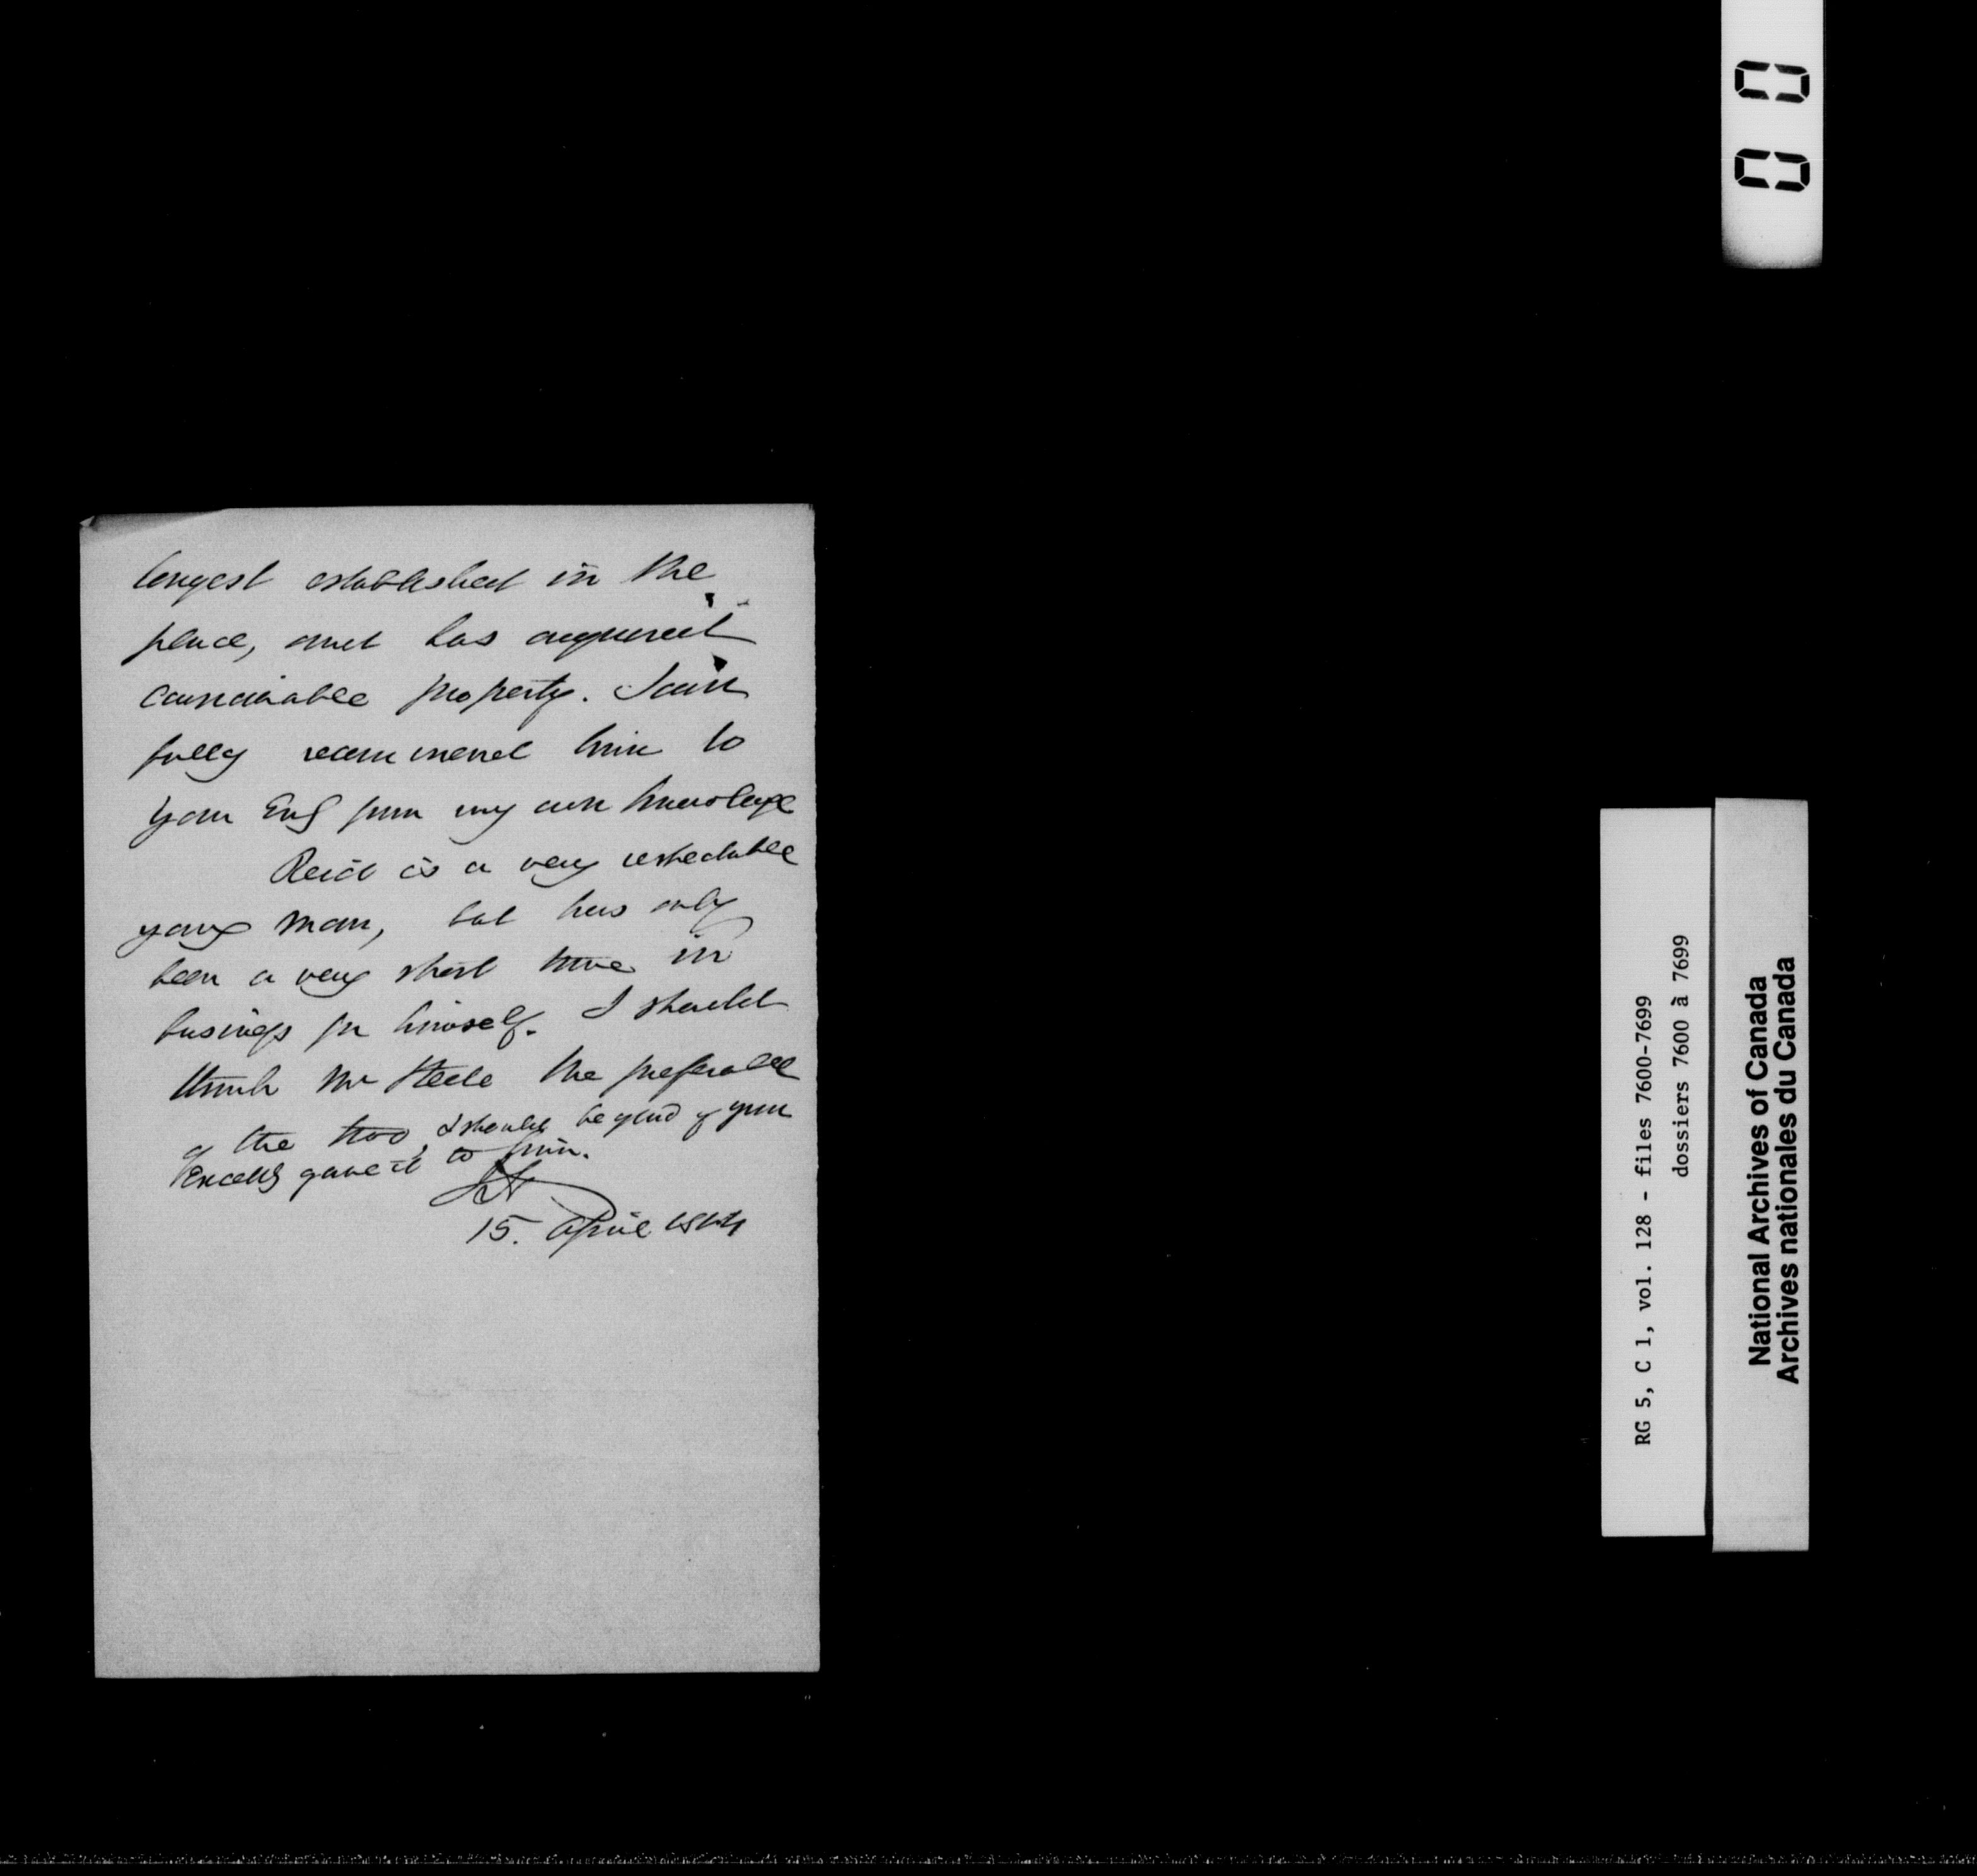 longest established in the
place, and has acquired
considerable property. I can
fully recommend him to
your Exy from my own knowledge
Reid is a very respectable
young man, but has only
been a very short time in
business for himself. I should
think Mr Steele the preferable
of the two, I should be glad if your
Excelly gave it to him.
15. April
00
RG 5, C 1, vol. 128 - files 7600-7699
dossiers 7600 à 7699
National Archives of Canada
Archives nationales du Canada